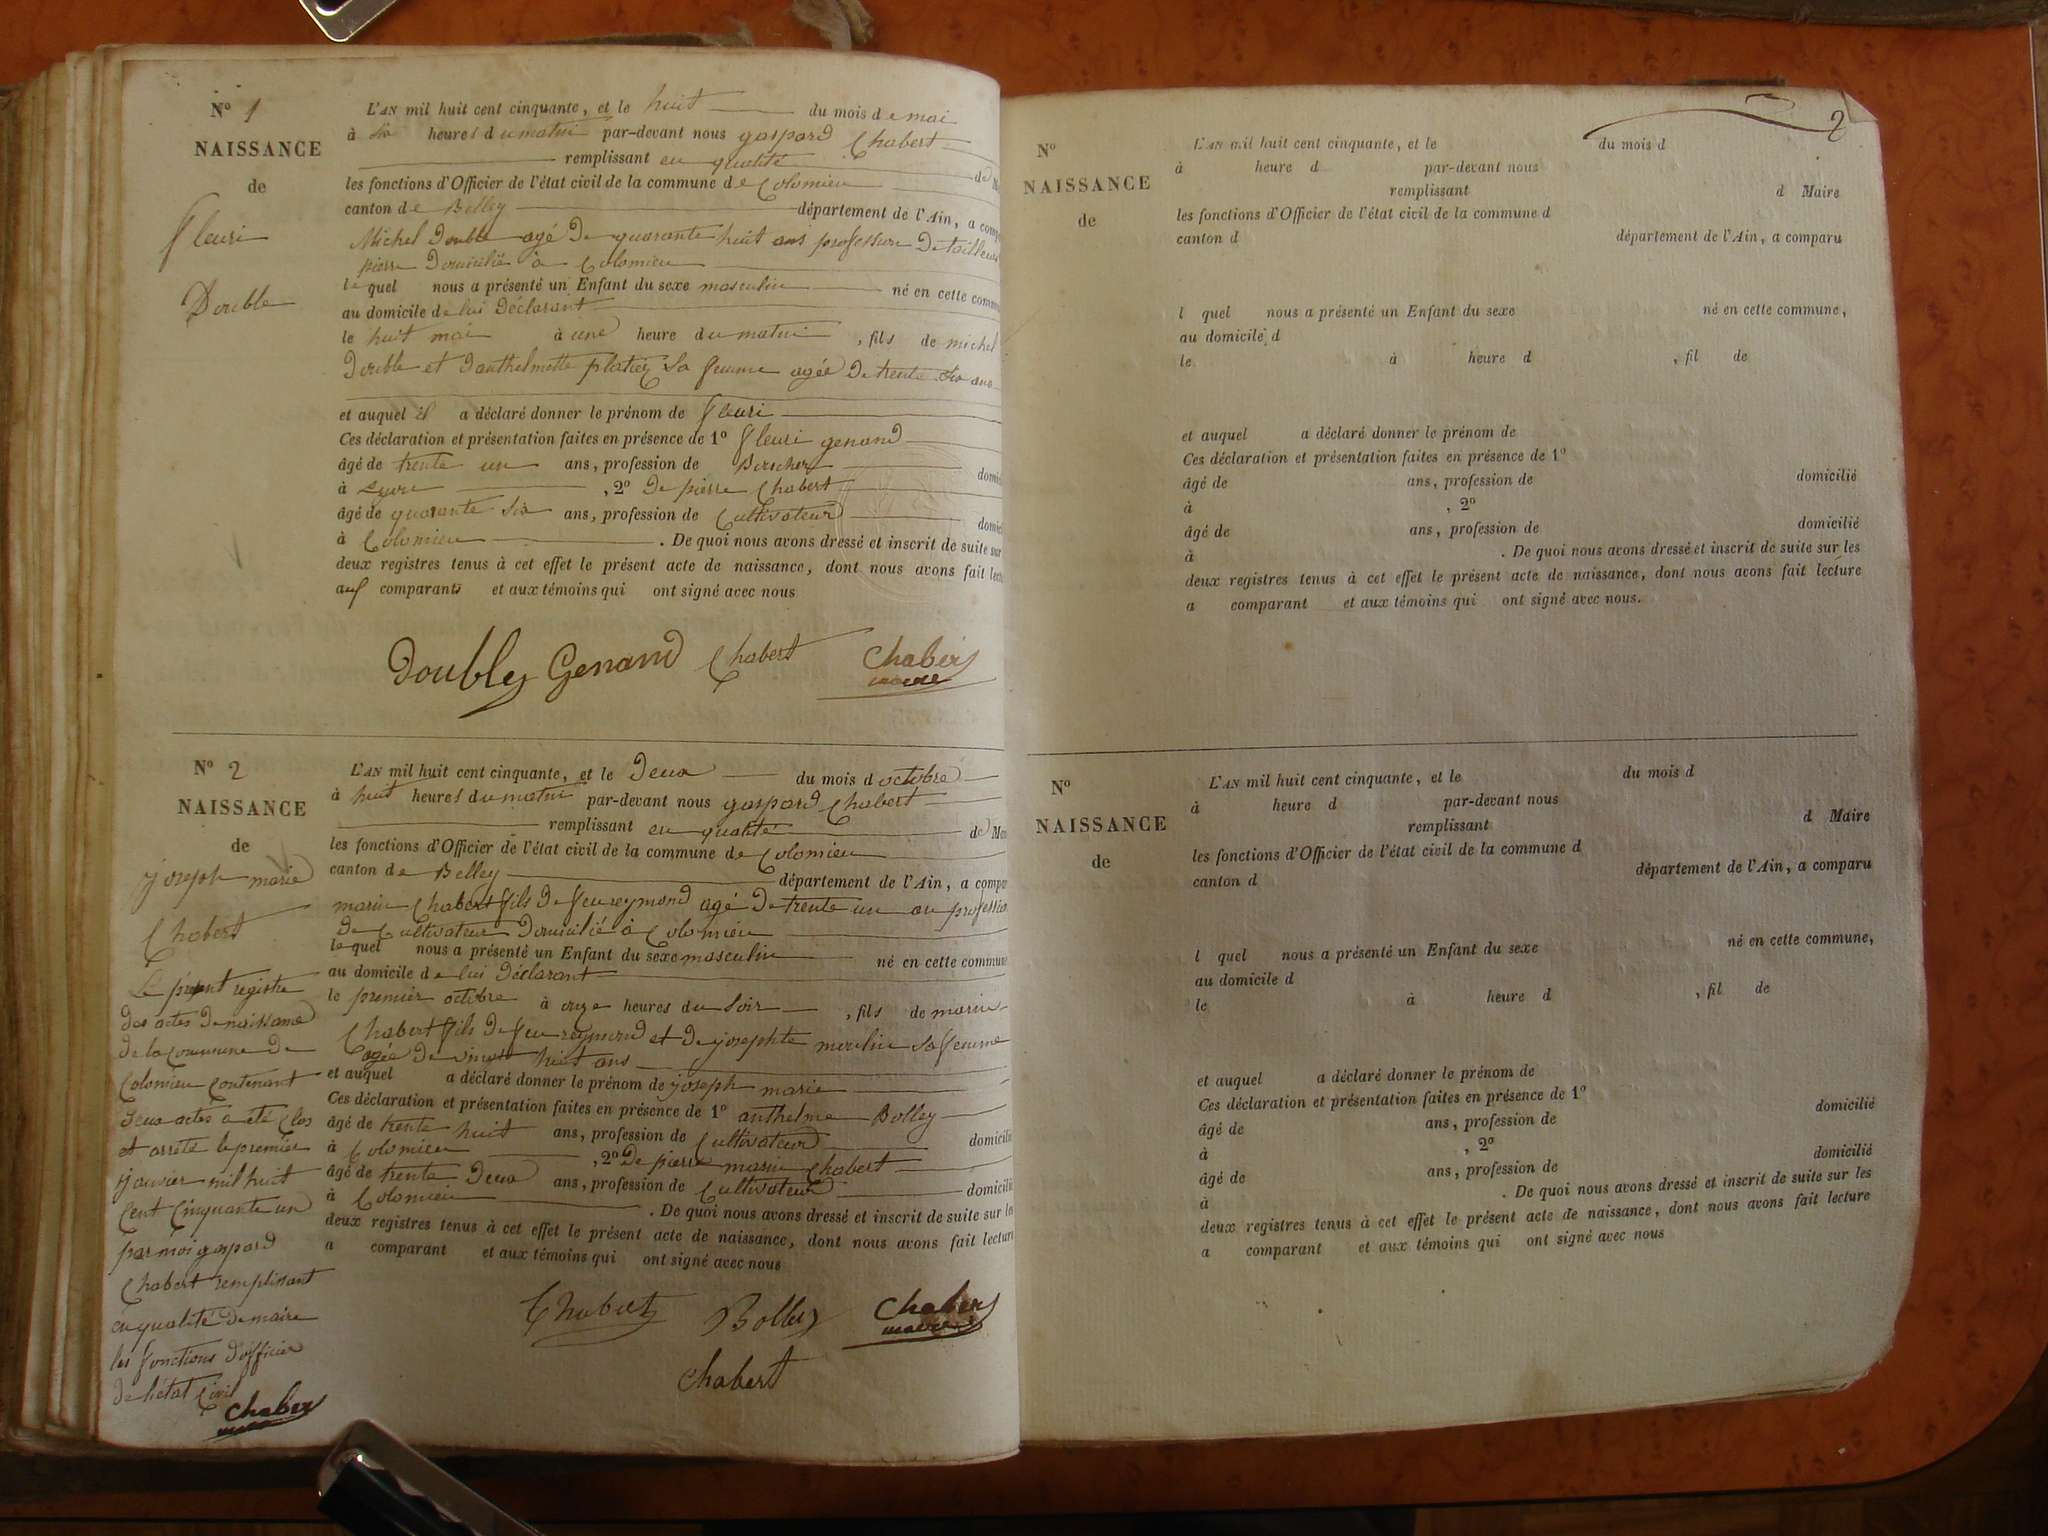 N° 1
NAISSANCE
de
fleuri
Double
L'AN mil huit cent cinquante, et le huit du mois de mai
à six heures du matin par-devant nous gaspard Chabert
remplissant en qualité de M
les fonctions d'Officier de l'état civil de la commune de Colomieu
canton de Belley département de l'Ain, a comp
Michel Double agé De quarante huit ans professure De tailleur
pierre Domicilié à Colomieu
lequel nous a présenté un Enfant du sexe masculin né en cette commu
au domicile de lui Déclarant
le huit mai à une heure du matin, fils de michel
Double et Danthelmette platier Sa femme agée De trente Six ans
et auquel il a déclaré donner le prénom de fleuri
Ces déclaration et présentation faites en présence de 1° fleuri genand
âgé de trente un ans, profession de domici
à , 2° De pierre Chabert
âgé de quarante Six ans, profession de Cultivateur domici
à Colomieu . De quoi nous avons dressé et inscrit de suite sur
deux registres tenus à cet effet le présent acte de naissance, dont nous avons fait lect
aux comparants et aux témoins qui ont signé avec nous
Double Genand Chabert Chaber
maire
N° 2
NAISSANCE
de
joseph marie
Chabert
L'AN mil huit cent cinquante, et le Deux du mois d octobre
à huit heures du matin par-devant nous gaspard Chabert
remplissant en qualité de Mai
les fonctions d'Officier de l'état civil de la commune de Colomieu
canton de Belley département de l'Ain, a compar
marin Chabert fils De feu reymond agé De trente un an profession
De Cultivateur Domicilié à Colomieu
lequel nous a présenté un Enfant du sexe masculin né en cette commune
au domicile de lui Déclarant
le premier octobre à onze heures du Soir, fils de marin
Chabert fils De feu reymond et De josephte moulin Sa femme
agée De vingt huit ans
et auquel a déclaré donner le prénom de joseph marie
Ces déclaration et présentation faites en présence de 1° anthelme Bolley
âgé de trente huit ans, profession de Cultivateur domicilié
à Colomieu , 2° De pierre marin Chabert
âgé de trente Deux ans, profession de Cultivateur domicilié
à Colomieu . De quoi nous avons dressé et inscrit de suite sur les
deux registres tenus à cet effet le présent acte de naissance, dont nous avons fait lecture
a comparant et aux témoins qui ont signé avec nous
Chabert Bolley Chaber
maire
Chabert
Le présent registre
des actes De naissance
de la Commune De
Colomieu Contenant
Deux actes à été Clos
et arreté le premier
janvier mil huit
Cent Cinquante un
par moi gaspard
Chabert remplissant
en qualité De maire
les fonctions d'officier
De l'état Civil
Chaber
maire
2
N°
NAISSANCE
de
L'AN mil huit cent cinquante, et le du mois d
à heure d par-devant nous
remplissant d Maire
les fonctions d'Officier de l'état civil de la commune d
canton d département de l'Ain, a comparu
l quel nous a présenté un Enfant du sexe né en cette commune,
au domicile d
le à heure d , fil de
et auquel a déclaré donner le prénom de
Ces déclaration et présentation faites en présence de 1°
âgé de ans, profession de domicilié
à , 2°
âgé de ans, profession de domicilié
à . De quoi nous avons dressé et inscrit de suite sur les
deux registres tenus à cet effet le présent acte de naissance, dont nous avons fait lecture
a comparant et aux témoins qui ont signé avec nous.
N°
NAISSANCE
de
L'AN mil huit cent cinquante, et le du mois d
à heure d par-devant nous
remplissant d Maire
les fonctions d'Officier de l'état civil de la commune d
canton d département de l'Ain, a comparu
l quel nous a présenté un Enfant du sexe né en cette commune,
au domicile d
le à heure d , fil de
et auquel a déclaré donner le prénom de
Ces déclaration et présentation faites en présence de 1°
âgé de ans, profession de domicilié
à , 2°
âgé de ans, profession de domicilié
à . De quoi nous avons dressé et inscrit de suite sur les
deux registres tenus à cet effet le présent acte de naissance, dont nous avons fait lecture
a comparant et aux témoins qui ont signé avec nous